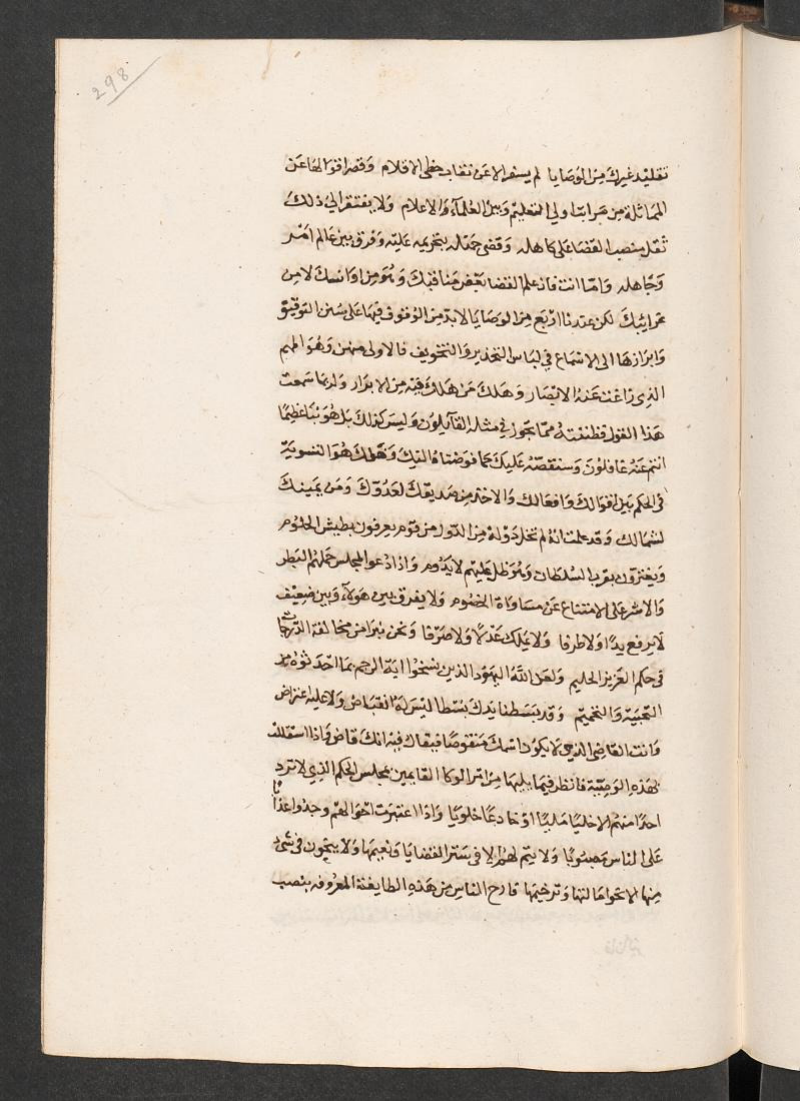 298
تقليد غيرك من الوصايا لم يسفر الا عن نقاب خطى الاقلام وقصر اقوالها عن
المماثلة من مراتب اولي التعليم وبين العلماء والاعلام ولا يفتقر الى ذلك
ثقل منصب القضا على كاهله وقضى جهله بتحريمه عليه وفرق بين عالم امر
وجاهله واما انت فان علم القضا بعض مناقبك وهو من اوانسك لا من
غرائبك لكن عندنا اربع من الوصايا لا بد من الوقوف فيها على سنن التوقيق
وابرازها الى الاسماع في لباس التحذير والتخويف فالاولى منهن وهو المهم
الذي زاغت عنه الابصار وهلك من هلك فيه من الابرار ولربما سمعت
هذا القول فظننته مما تجوز في مثله القايلون وليس كذلك بل هو نبا عظيما
انتم عنه غافلون وسنقصه عليك كما فوضناه اليك وذلك هو التسوية
فى الحكم بين اقوالك وافعالك والاخذ من صديقك لعدوك ومن يمينك
لشمالك وقد علمت انه لم تخل دولة من الدول من قوم يعرفون بطيش الحلوم
ويغترون بقرب السلطان وهو ظل عليهم لا يدوم واذا دعوا لمجلس حملهم البطر
والاشر على الامتناع عن مساواة الخصوم ولا يفرق بين هولاء وبين ضعيف
لا يرفع يدا ولا طرفا ولا يملك عدلا ولا صرفا ونحن نبرا من مخالفة الدرجات
فى حكم العزيز الحليم ولعن الله اليهود الذين نسخوا اية الرجم بما احدثوه من
التجبية والتحميم وقد بسطنا يدك بسطا ليس له انقباض ولا عليه اعتراض
وانت القاضي الذي لا يكون اسمك منقوصا فيقال فيه انك قاض واذا استقللت
لهذه الوصية فانظر فيما يليها من امر الوكلا القايمين بمجلس الحكم الذي لا ترد
احدا منهم الا خلبا ملبيا او خادعا خلوبا واذا اعتبرت احوالهم وجدوا عذابا
على الناس مصبوبا ولا يتم لهم الا في ستر القضايا وتعيمها ولا يحيون فى شي
منها الا نحوا مالها وترخيمها فارح الناس من هذه الطايفة المعروفه بنصب